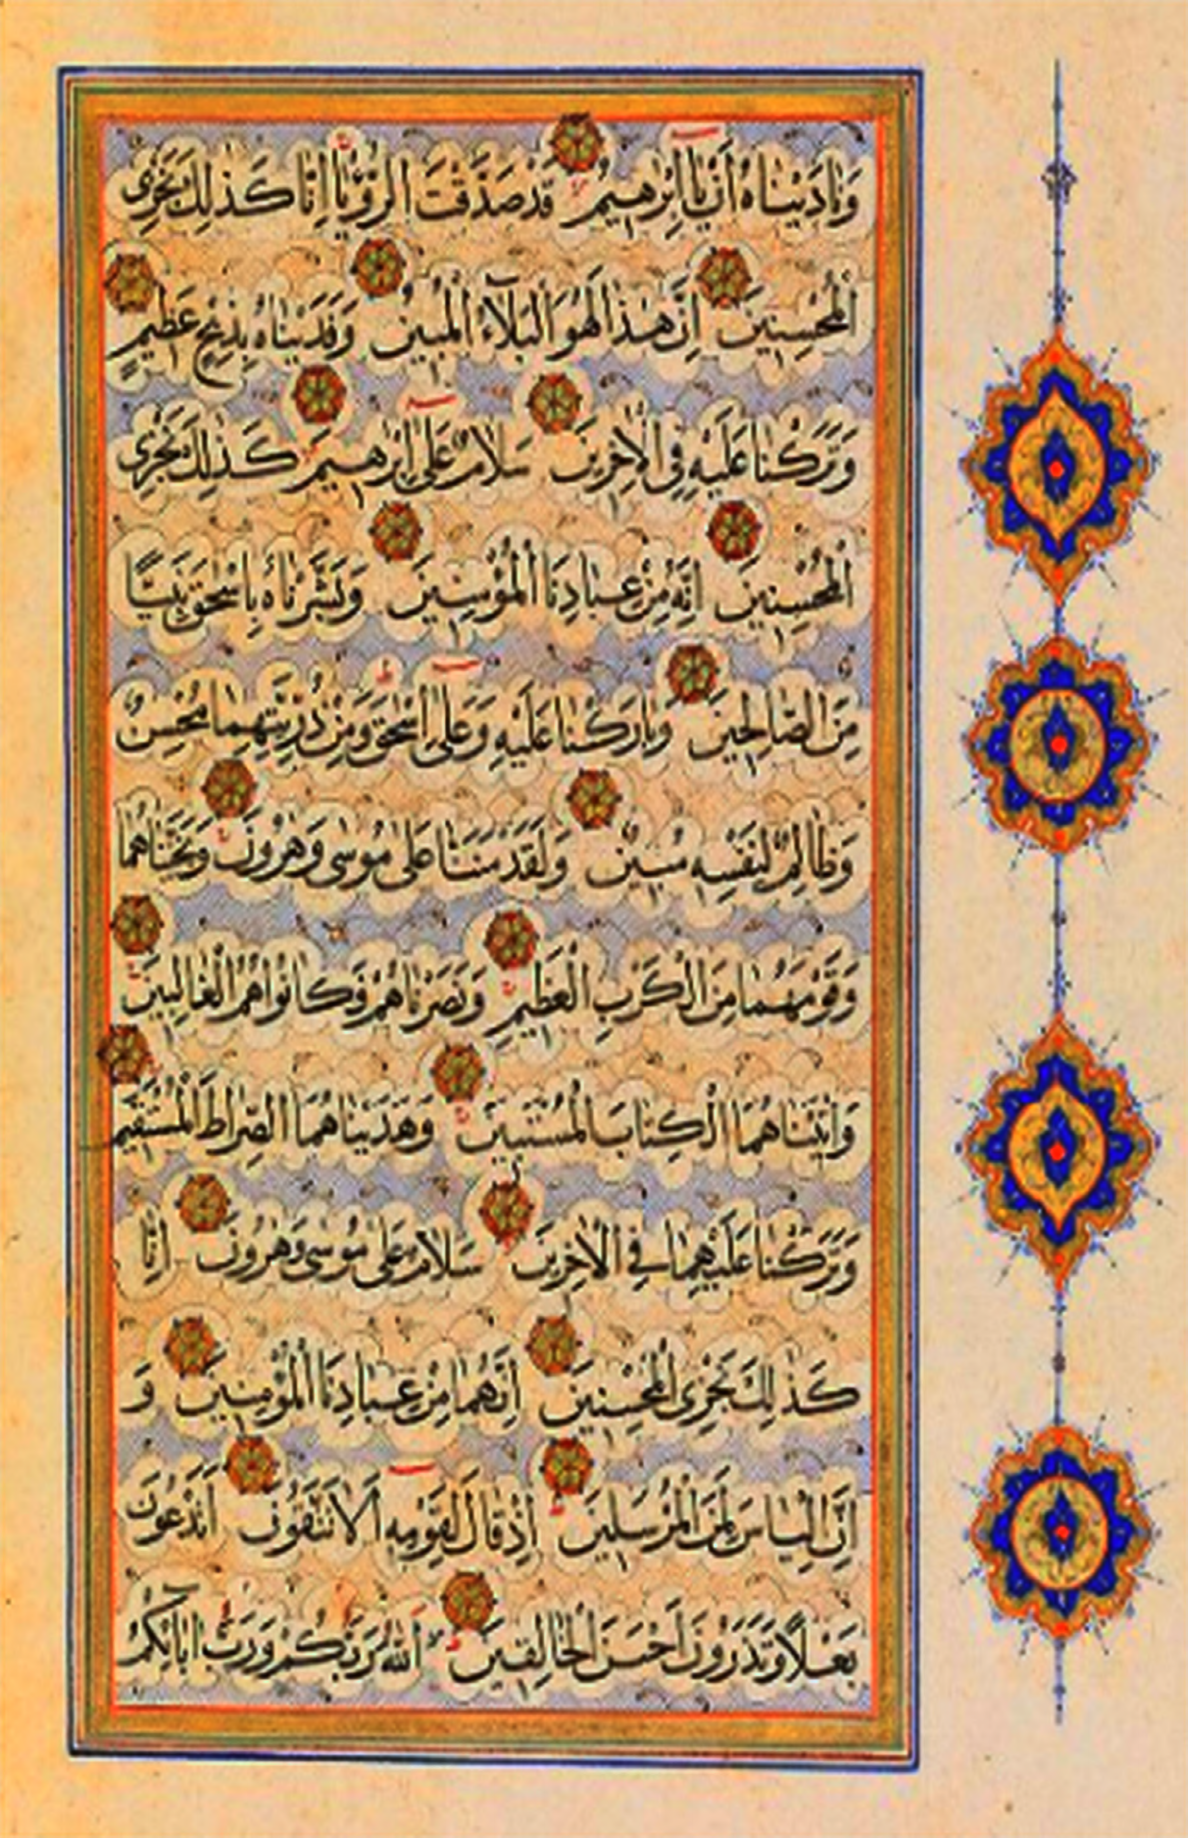 وَنَادَيْنَاهُ أَنْ يَا إِبْرٰهِيمُ قَدْ صَدَّقْتَ الرُّؤْيَا اِنَّا كَذٰلِكَ نَجْزِى
الْمُحْسِنِينَ اِنَّ هٰذَا لَهُوَ الْبَلَآءُ الْمُبِينُ وَفَدَيْنَاهُ بِذِبْحٍ عَظِيمٍ
وَتَرَكْنَا عَلَيْهِ فِى الْاٰخِرِينَ سَلَامٌ عَلٰى اِبْرٰهِيمَ كَذٰلِكَ نَجْزِى
الْمُحْسِنِينَ اِنَّهُ مِنْ عِبَادِنَا الْمُؤْمِنِينَ وَبَشَّرْنَاهُ بِاِسْحٰقَ نَبِيًّا
مِنَ الصَّالِحِينَ وَبَارَكْنَا عَلَيْهِ وَعَلٰى اِسْحٰقَ وَمِنْ ذُرِّيَّتِهِمَا مُحْسِنٌ
وَظَالِمٌ لِنَفْسِهِ مُبِينٌ وَلَقَدْ مَنَنَّا عَلٰى مُوسٰى وَهٰرُونَ وَنَجَّيْنَاهُمَا
وَقَوْمَهُمَا مِنَ الْكَرْبِ الْعَظِيمِ وَنَصَرْنَاهُمْ فَكَانُوا هُمُ الْغَالِبِينَ
وَاٰتَيْنَاهُمَا الْكِتَابَ الْمُسْتَبِينَ وَهَدَيْنَاهُمَا الصِّرَاطَ الْمُسْتَقِيمَ
وَتَرَكْنَا عَلَيْهِمَا فِى الْاٰخِرِينَ سَلَامٌ عَلٰى مُوسٰى وَهٰرُونَ اِنَّا
كَذٰلِكَ نَجْزِى الْمُحْسِنِينَ اِنَّهُمَا مِنْ عِبَادِنَا الْمُؤْمِنِينَ وَ
اِنَّ اِلْيَاسَ لَمِنَ الْمُرْسَلِينَ اِذْ قَالَ لِقَوْمِهِ اَلَا تَتَّقُونَ اَتَدْعُونَ
بَعْلًا وَتَذَرُونَ اَحْسَنَ الْخَالِقِينَ اَللّٰهَ رَبَّكُمْ وَرَبَّ اٰبَائِكُمُ